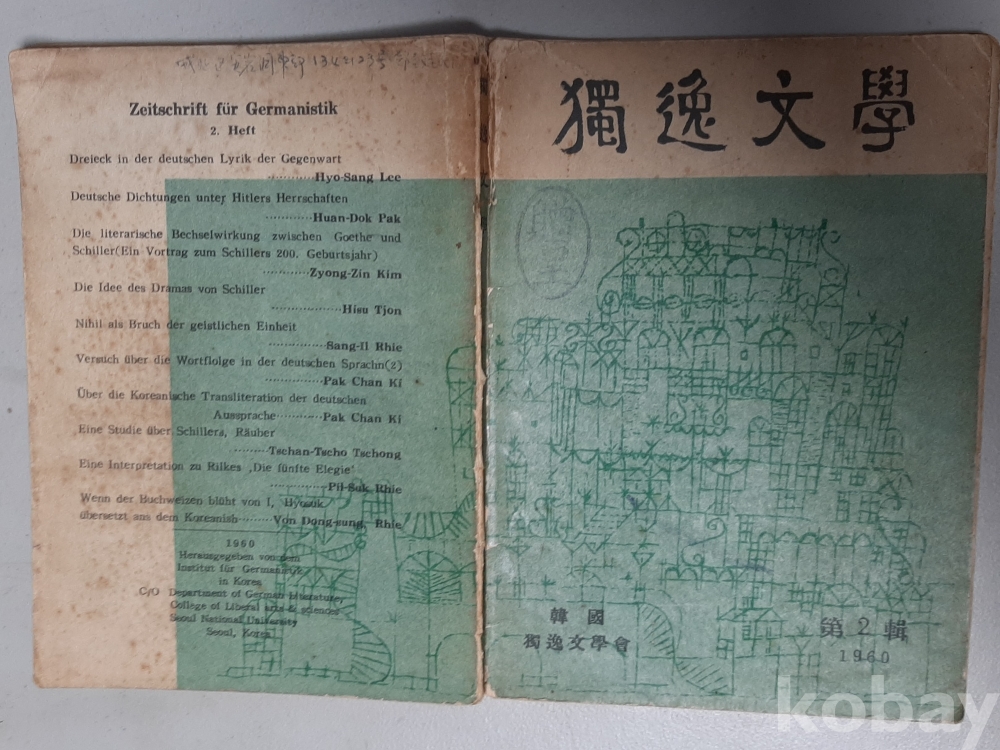 Zeitschrift für Germanistik
2. Heft
Dreieck in der deutschen Lyrik der Gegenwart
············Hyo-Sang Lee
Deutsche Dichtungen unter Hitlers Herrschaften
············Huan-Dok Pak
Die literarische Bechselwirkung zwischen Goethe und
Schiller(Ein Vortrag zum Schillers 200. Geburtsjahr)
············Zyong-Zin Kim
Die Idee des Dramas von Schiller
············Hisu Tjon
Nihil als Bruch der geistlichen Einheit
············Sang-Il Rhie
Versuch über die Wortflolge in der deutschen Sprachn(2)
············Pak Chan Ki
Über die Koreanische Transliteration der deutschen
Aussprache··········Pak Chan Ki
Eine Studie über Schillers, Räuber
········Tschan-Tscho Tschong
Eine Interpretation zu Rilkes ‚Die fünfte Elegie'
············Pil-Suk Rhie
Wenn der Buchweizen blüht von I, Hyosuk
übersetzt ans dem Koreanish········Von Dong-sung, Rhie
1960
Herausgegeben von dem
Institut für Germanistik
in Korea
C/O Department of German Literature,
College of Liberal arts & sciences
Seoul National University
Seoul, Korea
獨逸文學
韓國
獨逸文學會
第2輯
1960
kobay